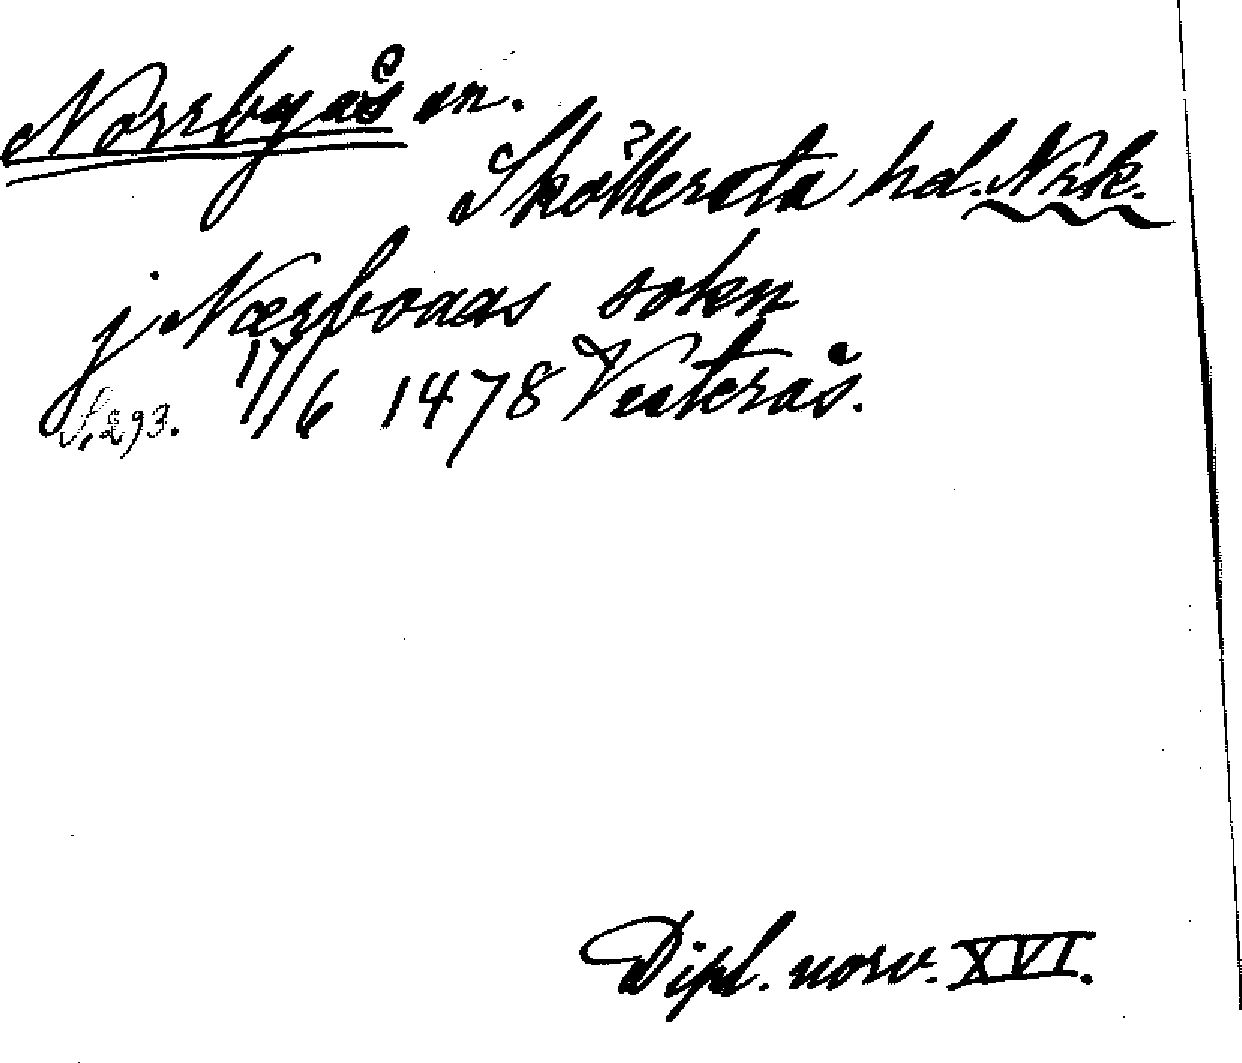 Norrbyås sn.
Sköllersta hd. Nrk.
j Nærboaas sokn
S. 293. 17/6 1478 Vesterås.
Dipl. norv. XVI.